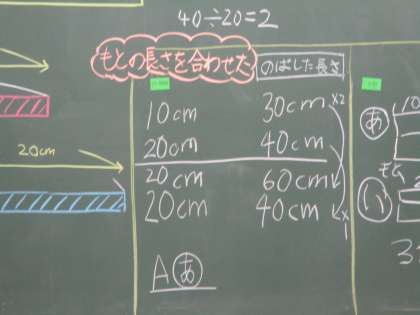 40÷20=2
もとの長さを合わせた
のばした長さ
10cm 30cm ×2
20cm 40cm
20cm 60cm
20cm 40cm ×1
Aあ
20cm
あ 10
ゴム
い 2
3